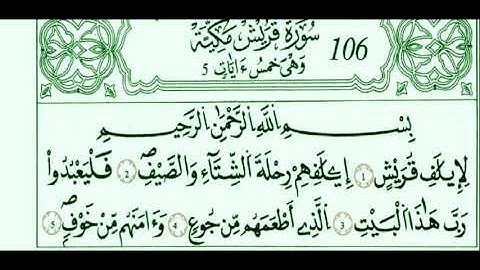 سُورَةُ قُرَيْشٍ مَكِّيَّة
106
وَهْيَ خَمْسُ ءَايَاتٍ 5
بِسْمِ اللَّهِ الرَّحْمَٰنِ الرَّحِيمِ
لِإِيلَٰفِ قُرَيْشٍ 1 إِۦلَٰفِهِمْ رِحْلَةَ الشِّتَآءِ وَالصَّيْفِ 2 فَلْيَعْبُدُوا
رَبَّ هَٰذَا الْبَيْتِ 3 الَّذِے أَطْعَمَهُم مِّن جُوعٍ 4 وَءَامَنَهُم مِّنْ خَوْفٍ 5